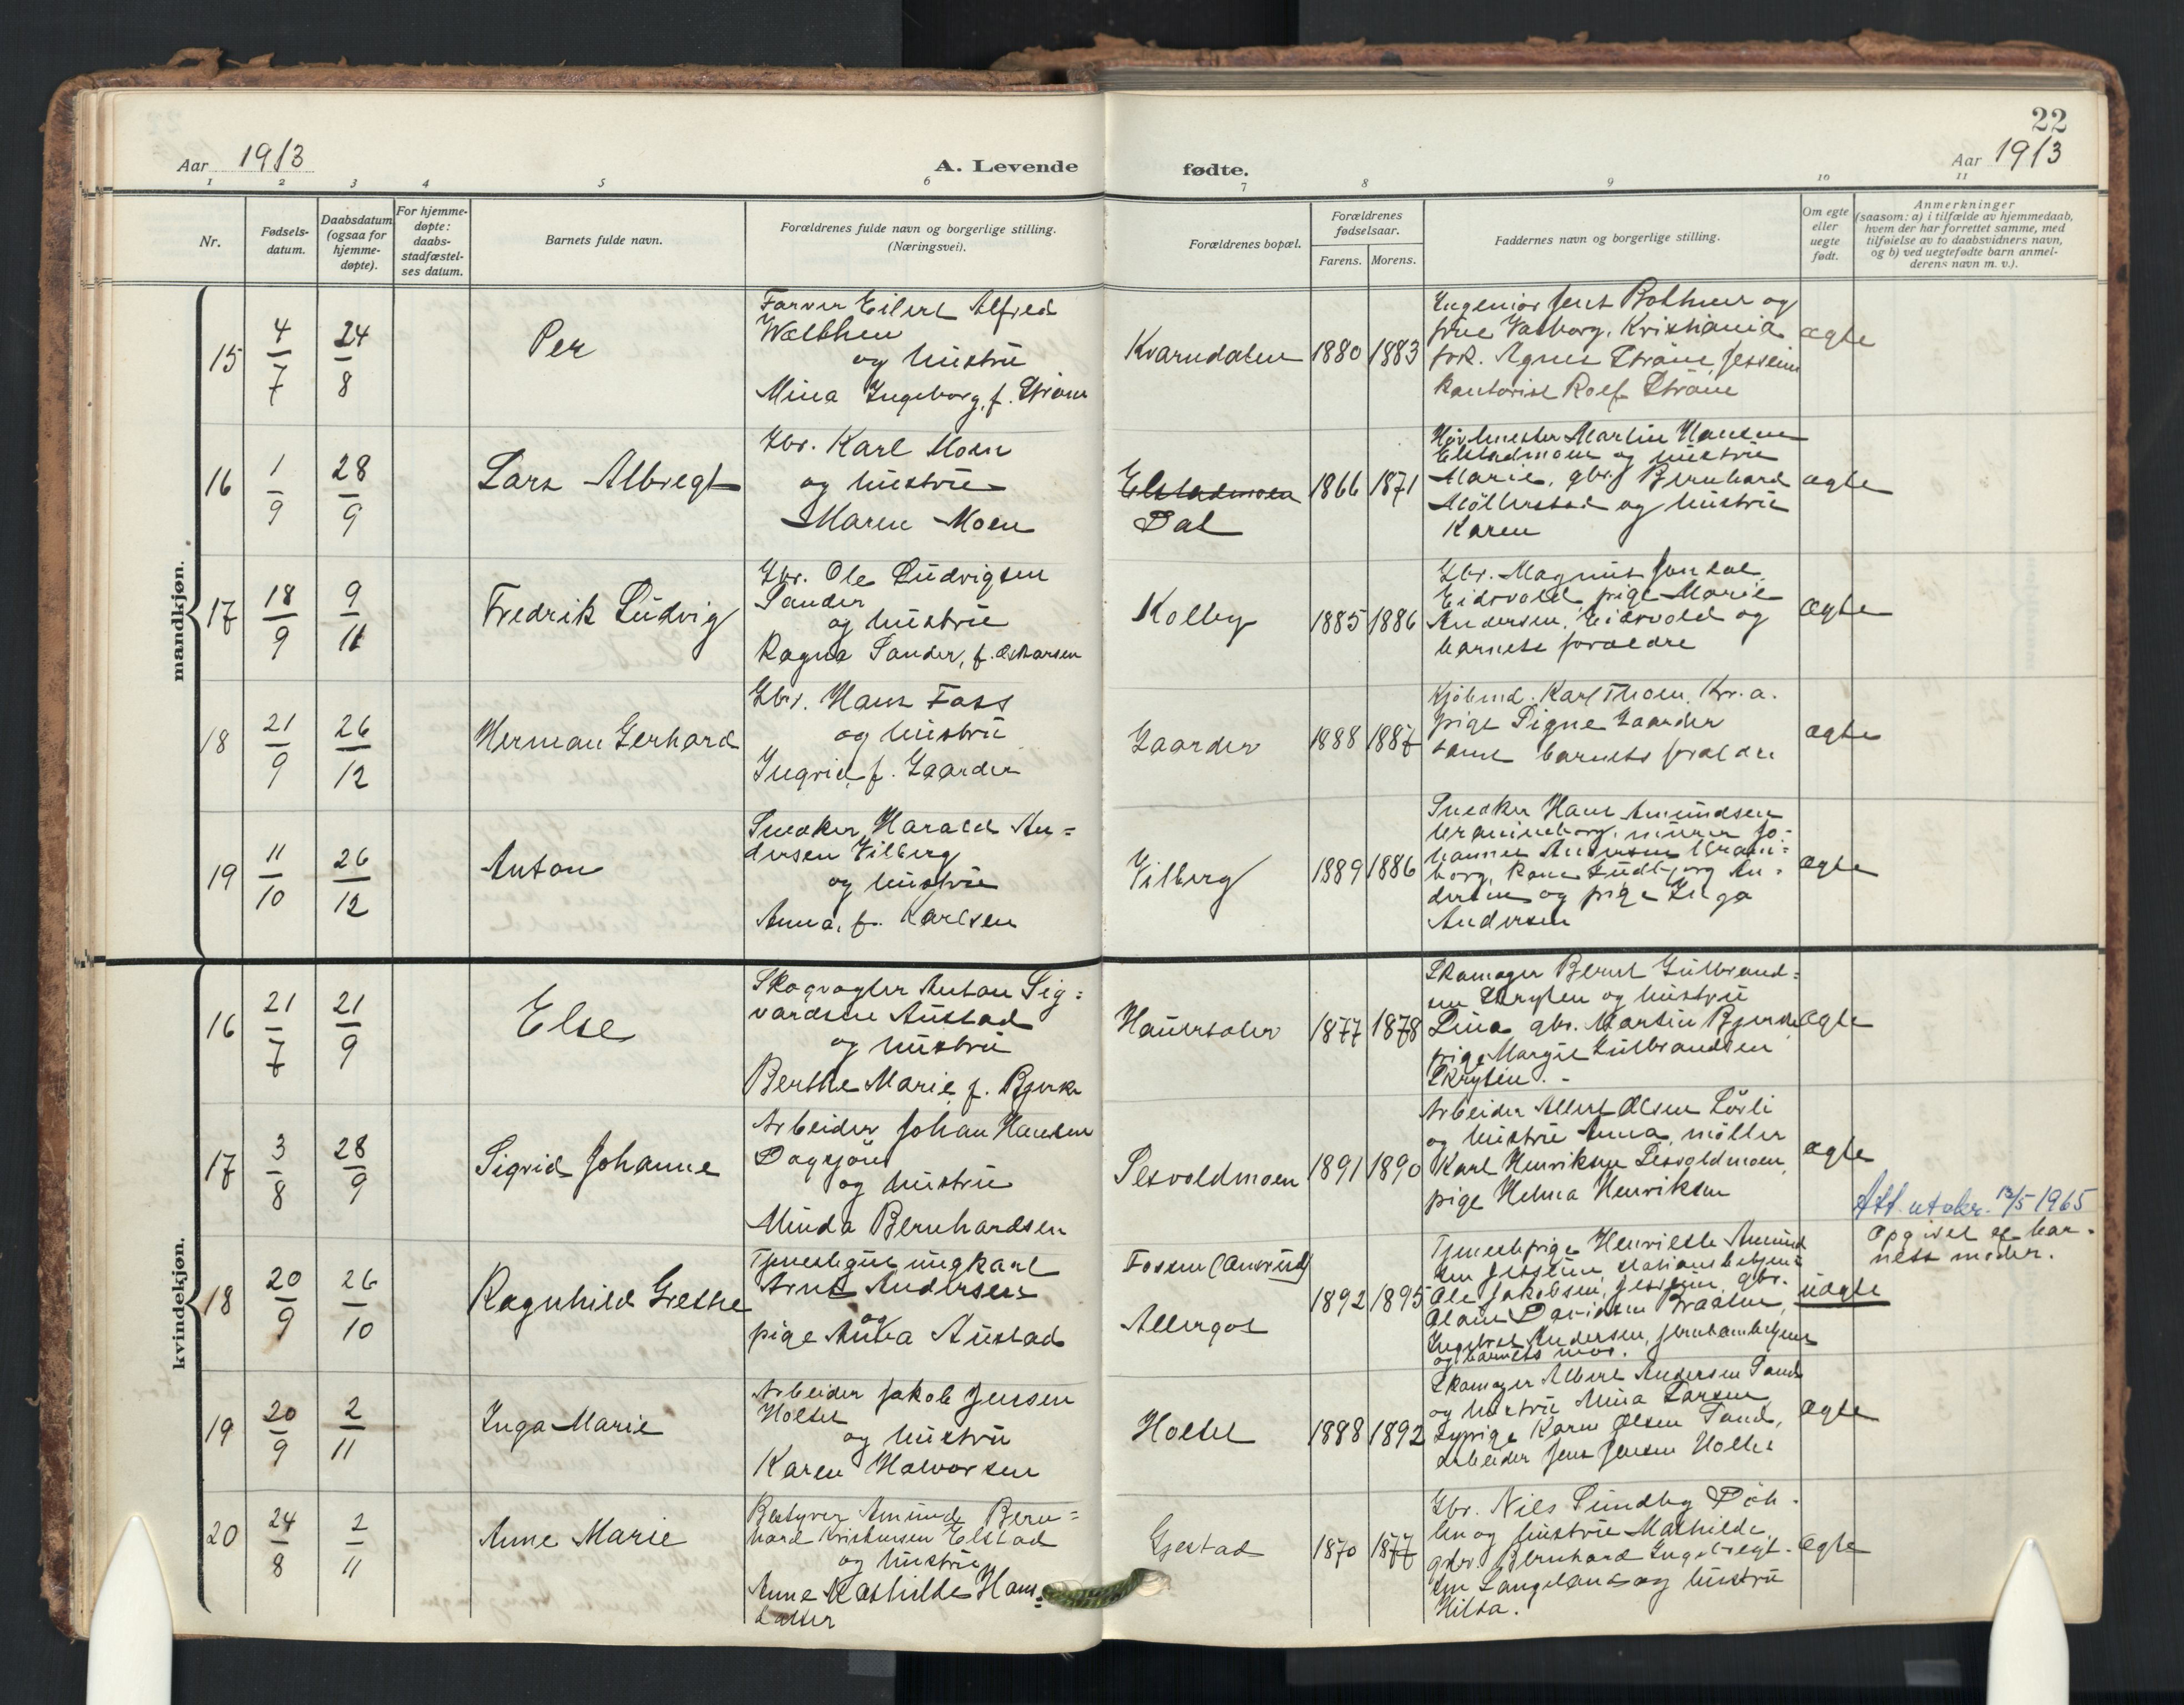 22
Aar 1913
A. Levende
fødte.
Aar 1913
1 2 3 4 5 6 7 8 9 10 11
Nr.
Fødsels-
datum.
Daabsdatum
(ogsaa for
hjemme-
døpte).
For hjemme-
døpte:
daabs-
stadfæstel-
ses datum.
Barnets fulde navn.
Forældrenes fulde navn og borgerlige stilling.
(Næringsvei).
Forældrenes bopæl.
Forældrenes
fødselsaar.
Farens. Morens.
Faddernes navn og borgerlige stilling.
Om egte
eller
uegte
født.
Anmerkninger
(saasom: a) i tilfælde av hjemmedaab,
hvem der har forrettet samme, med
tilføielse av to daabsvidners navn,
og b) ved uegtefødte barn anmel-
derens navn m. v.).
mandkjøn.
15
4/7
24/8
Per
Farver Eilert Alfred
og hustru
Mina Ingeborg, f. Strøm
Kvarndalen
1880 1883
Ingeniør Jens Bothner og
frue Valborg, Kristiania
frk. Agnes Strøm, Jessheim
kontorist Rolf Strøm
ægte
16
1/9
28/9
Lars Albregt
Gbr. Karl Moen
og hustru
Maren Moen
Elstadmoen
Dal
1866 1871
Martin Hansen
Elstadmoen og hustru
Marie, gbr. Bernhard
Møllerstad og hustru
Karen
ægte
17
18/9
9/11
Fredrik Ludvig
Gbr. Ole Ludvigsen
Sander
og hustru
Ragna Sander, f. Oskarsen
Kolby
1885 1886
Gbr. Magnus
Eidsvold, pige Marie
Andersen, Eidsvold og
barnets forældre
ægte
18
21/9
26/12
Herman Gerhard
Gbr. Hans Foss
og hustru
Ingrid, f. Gaarder
Gaarder
1888 1887
Kjøbmd. Karl Thoen, Kr.a.
pige Signe Gaarder
samt barnets forældre
ægte
19
11/10
26/12
Anton
Snedker Harald An=
dersen Vilberg
og hustru
Anna, f. Karlsen
Vilberg
1889 1886
Snedker Hans Amundsen
murer Jo-
hannes Andersen
borg, An-
dersen og pige Inga
Andersen
ægte
kvindekjøn.
16
21/7
21/9
Else
Skogvogter Anton Sig=
vardsen Austad
og hustru
Berthe Marie f. Bjerke
Hauersæter
1877 1878
Skomager Bernt Gulbrand=
sen Skryten og hustru
Lina, gbr. Martin Bjerke
pige Margit Gulbrandsen
Skryten.
ægte
17
3/8
28/9
Sigrid Johanne
Arbeider Johan Hansen
Dagsjøn
og hustru
Minda Bernhardsen
Sesvoldmoen
1891 1890
Arbeider Albert Olsen Løvli
og hustru Anna, møller
Karl Henriksen Sesvoldmoen,
pige Helma Henriksen
ægte
18
20/9
26/10
Ragnhild Grethe
Tjenestegut ungkarl
Arnt Andersen
og
pige Anna Austad
Fossen (Aurud)
Allergot
1892 1895
Tjenestepige Henriette Amund
sen Jessheim, stationsbetjent
Ole Jakobsen, Jessheim, gbr.
Olaus Davidsen Braaten,
Ingebret Andersen, jernbanebetjent
og barnets mor.
uægte
Att. utskr. 13/5 1965
Opgivet af bar-
nets moder.
19
20/9
2/11
Inga Marie
Arbeider Jakob Jensen
Holtet
og hustru
Karen Halvorsen
Holtet
1888 1892
Skomager Albert Andersen Sand
og hustru Mina Larsen
sypige Karen Olsen Sand,
arbeider Jens Jensen Holtet
ægte
20
24/8
2/11
Anne Marie
Bestyrer Amund Bern=
hard Kristensen Elstad
og hustru
Anne Mathilde Hans=
datter
Gjestad
1870 1877
Gbr. Nils Sundby Døh-
len og hustru Mathilde,
gbr. Bernhard Ingebregt-
sen Langeland og hustru
Hilda.
ægte